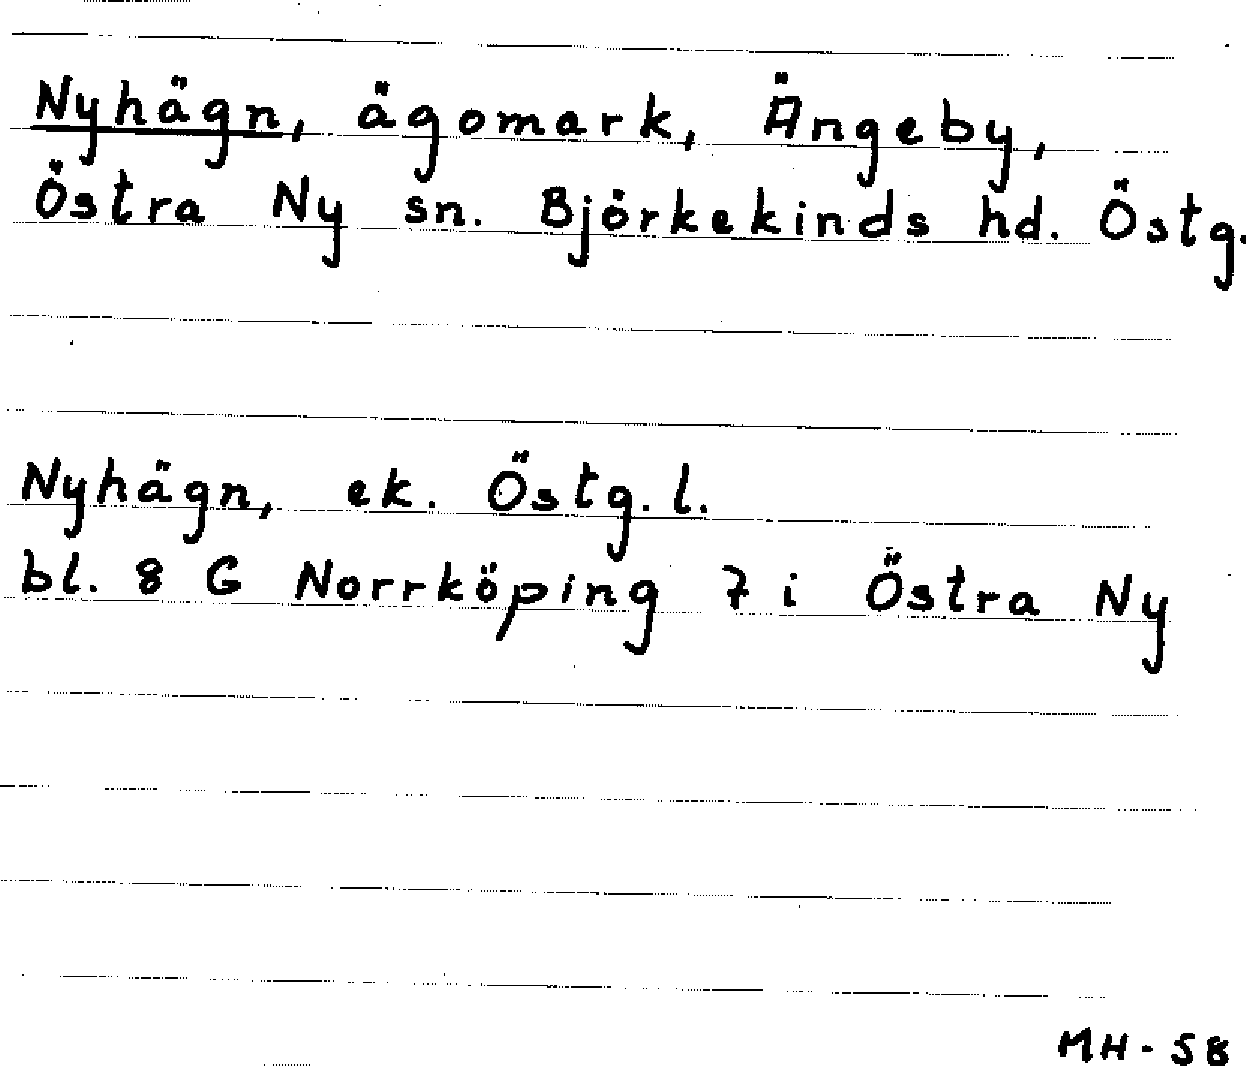 Nyhägn, ägomark, Ängeby,
Östra Ny sn. Björkekinds hd. Östg.
Nyhägn, ek. Östg. l.
bl. 8 G Norrköping 7 i Östra Ny
MH - 58